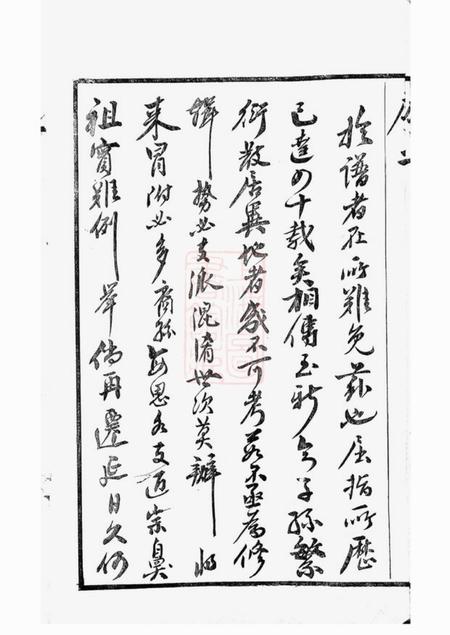 於譜者在所難免茲也屈指所歷
已達四十載矣相傳至新今子孫繁
衍散居異地者或不可考若不亟為修
輯勢必支派混淆世次莫辨將
來冒附必多裔孫每思各支近宗鼻
祖實難例舉倘再遷延日久何